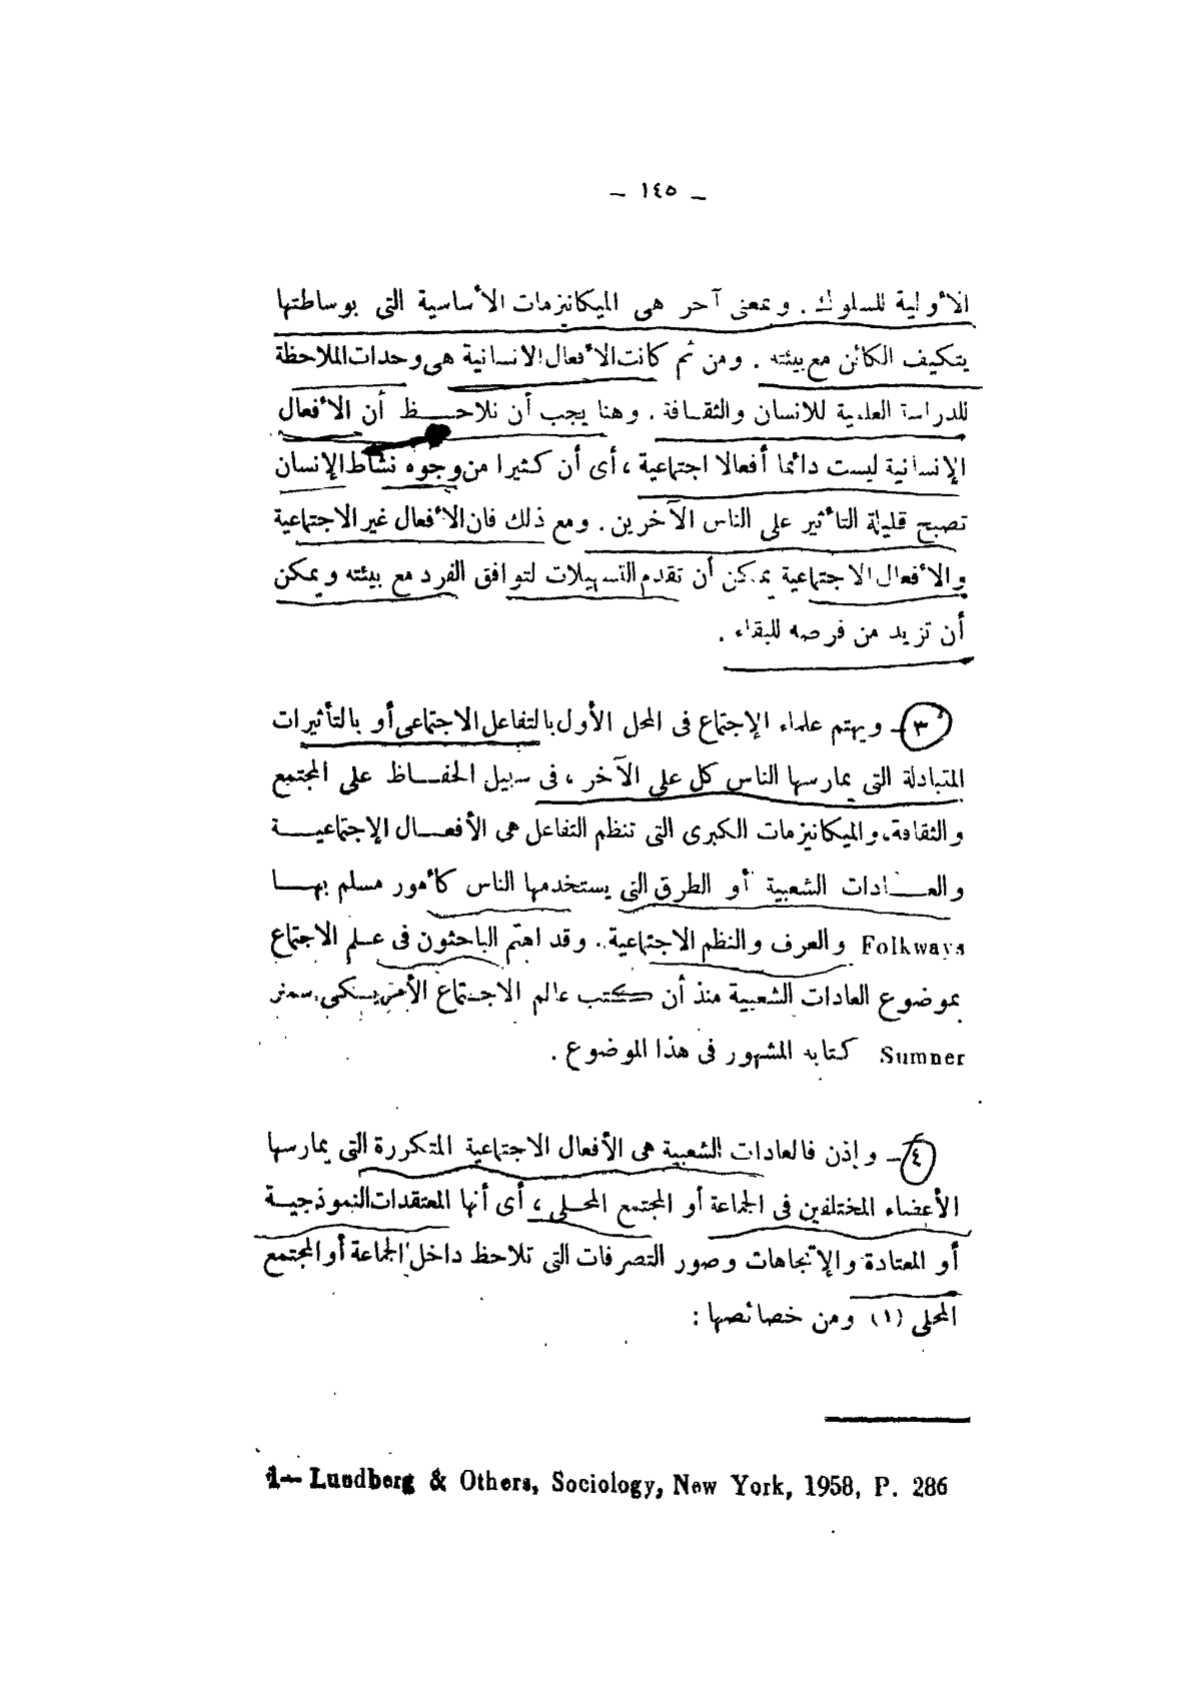 – ١٤٥ –
الأولية للسلوك . وبمعنى آخر هى الميكانيزمات الأساسية التى بوساطتها
يتكيف الكائن مع بيئته . ومن ثم كانت الأفعال الانسانية هى وحدات الملاحظة
للدراسة العلمية للانسان والثقافة . وهنا يجب أن نلاحظ أن الأفعال
الإنسانية ليست دائما أفعالا اجتماعية ، أى أن كثيرا من وجوه نشاط الإنسان
تصبح قليلة التأثير على الناس الآخرين . ومع ذلك فان الأفعال غير الاجتماعية
والأفعال الاجتماعية يمكن أن تقدم التسهيلات لتوافق الفرد مع بيئته ويمكن
أن تزيد من فرصه للبقاء .
٣ – ويهتم علماء الإجتماع فى المحل الأول بالتفاعل الاجتماعى أو بالتأثيرات
المتبادلة التى يمارسها الناس كل على الآخر ، فى سبيل الحفاظ على المجتمع
والثقافة، والميكانيزمات الكبرى التى تنظم التفاعل هى الأفعال الإجتماعية
والعادات الشعبية أو الطرق التى يستخدمها الناس كأمور مسلم بها
Folkways والعرف والنظم الاجتماعية.. وقد اهتم الباحثون فى علم الاجتماع
بموضوع العادات الشعبية منذ أن كتب عالم الاجتماع الأمريكى سمنر
Sumner كتابه المشهور فى هذا الموضوع .
٤ – وإذن فالعادات الشعبية هى الأفعال الاجتماعية المتكررة التى يمارسها
الأعضاء المختلفين فى الجماعة أو المجتمع المحلى ، أى أنها المعتقدات النموذجية
أو المعتادة والإتجاهات وصور التصرفات التى تلاحظ داخل الجماعة أو المجتمع
المحلى (١) ومن خصائصها :
1— Lundberg & Others, Sociology, New York, 1958, P. 286